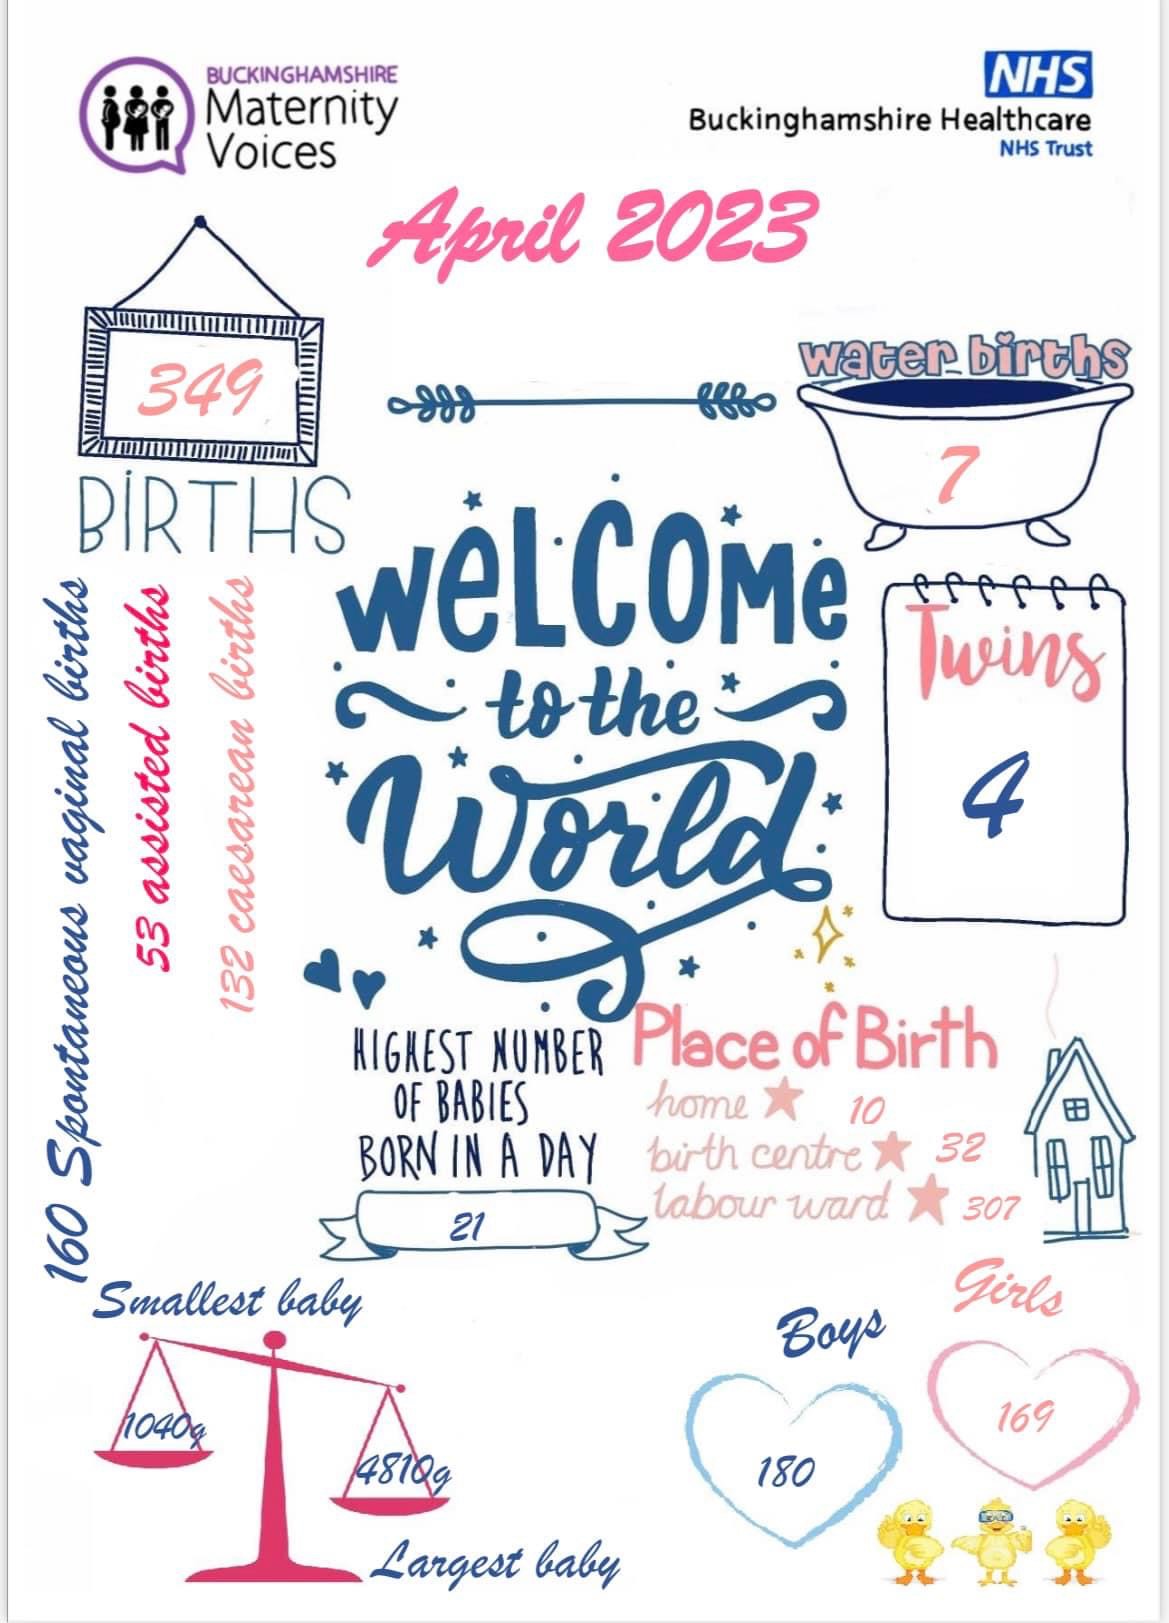 BUCKINGHAMSHIRE
Maternity
Voices
NHS
Buckinghamshire Healthcare
NHS Trust
April 2023
349
BiRTHS
water births
7
160 Spontaneous vaginal births
53 assisted births
132 caesarean births
weLCOMe
to the
World
Twins
4
HIGHEST NUMBER
OF BABIES
BORN IN A DAY
21
Place of Birth
home 10
birth centre 32
labour ward 307
Smallest baby
1040g
4810g
Largest baby
Boys
180
Girls
169